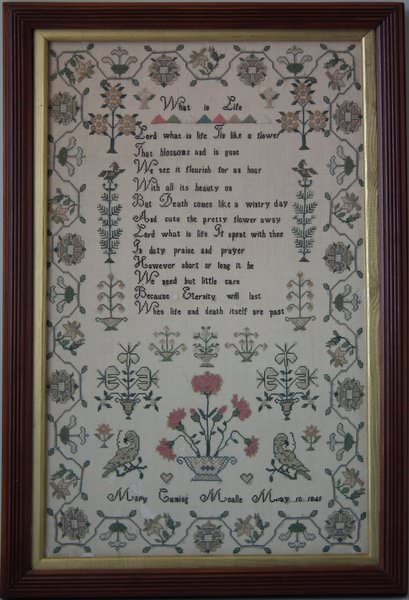 What is Life
Lord what is life Tis like a flower
That blossoms and is gone
We see it flourish for an hour
With all its beauty on
But Death comes like a wintry day
And cuts the pretty flower away
Lord what is life If spent with thee
In duty praise and prayer
However short or long it be
We need but little care
Because Eternity will last
When life and death itself are past
Mary May 10